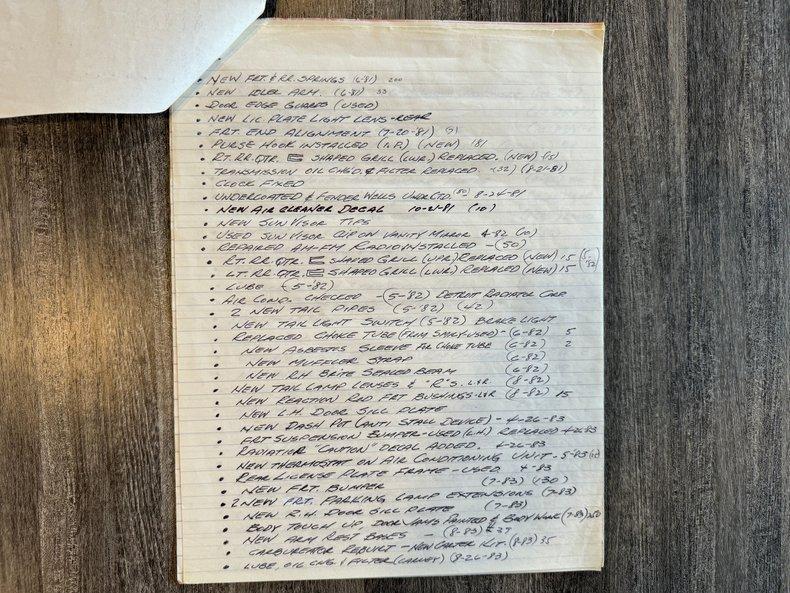 • NEW FRT. & RR. SPRINGS (6-81) 200
• NEW IDLER ARM. (6-81) 33
• DOOR EDGE GUARDS (USED)
• NEW LIC. PLATE LIGHT LENS-REAR
• FRT END ALIGNMENT (7-20-81)
• PURSE HOOK INSTALLED (NEW)
• RT. RR. QTR. E SHAPED GRILL (LWR) REPLACED. (NEW)
• TRANSMISSION OIL CHG'D. & FILTER REPLACED. (32) (8-21-81)
• CLOCK FIXED
• UNDERCOATED & FENDER WELLS (50) 8-24-81
• NEW AIR CLEANER DECAL 10-21-81 (10)
• NEW SUN VISOR TIPS
• USED SUN VISOR CLIP ON VANITY MIRROR 4-82 (10)
• REPAIRED AM-FM RADIO INSTALLED - (50)
• RT. RR QTR. E SHAPED GRILL (UPR) REPLACED (NEW) 15 (5-82)
• LT. RR QTR. E SHAPED GRILL (LWR) REPLACED (NEW) 15
• LUBE (5-82)
• AIR COND. CHECKED - (5-82) DETROIT RADIATOR CORE
• 2 NEW TAIL PIPES (5-82) (42)
• NEW TAIL LIGHT SWITCH (5-82) BRAKE LIGHT
• REPLACED CHOKE TUBE (FROM USED) - (6-82) 5
• NEW ASBESTOS SLEEVE FOR CHOKE TUBE (6-82) 2
• NEW MUFFLER STRAP (6-82)
• NEW R.H. BRITE SEALED BEAM (6-82)
• NEW TAIL LAMP LENSES & "R'S. L&R. (8-82)
• NEW REACTION ROD FRT BUSHINGS-L&R (8-82) 15
• NEW L.H. DOOR SILL PLATE
• NEW DASH POT (ANTI STALL DEVICE) - 4-26-83
• FRT SUSPENSION BUMPER-USED (L.H.) REPLACED 4-26-83
• RADIATOR "CAUTION" DECAL ADDED. 4-26-83
• NEW THERMOSTAT ON AIR CONDITIONING UNIT. 5-83
• REAR LICENSE PLATE FRAME - USED 4-83
• NEW FRT. BUMPER (7-83) (130)
• 2 NEW FRT. PARKING LAMP EXTENSIONS (7-83)
• NEW R.H. DOOR SILL PLATE (7-83)
• BODY TOUCH UP, DOOR JAMBS PAINTED & BODY WORK (7-83)
• NEW ARM REST BASES - (8-83) 37
• CARBURETOR REBUILT - NEW CARTER KIT. (8-83) 35
• LUBE, OIL CNG. & FILTER (8-26-83)